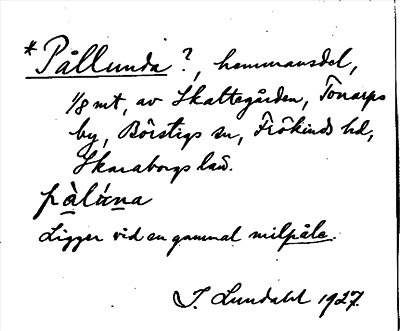 *Pållunda ?, hemmansdel,
1/8 mt, av Skattegården, Tonarps
by, Börstigs sn, Frökinds hd,
Skaraborgs län.
pàlúna
Ligger vid en gammal milpåle.
I. Lundahl 1927.